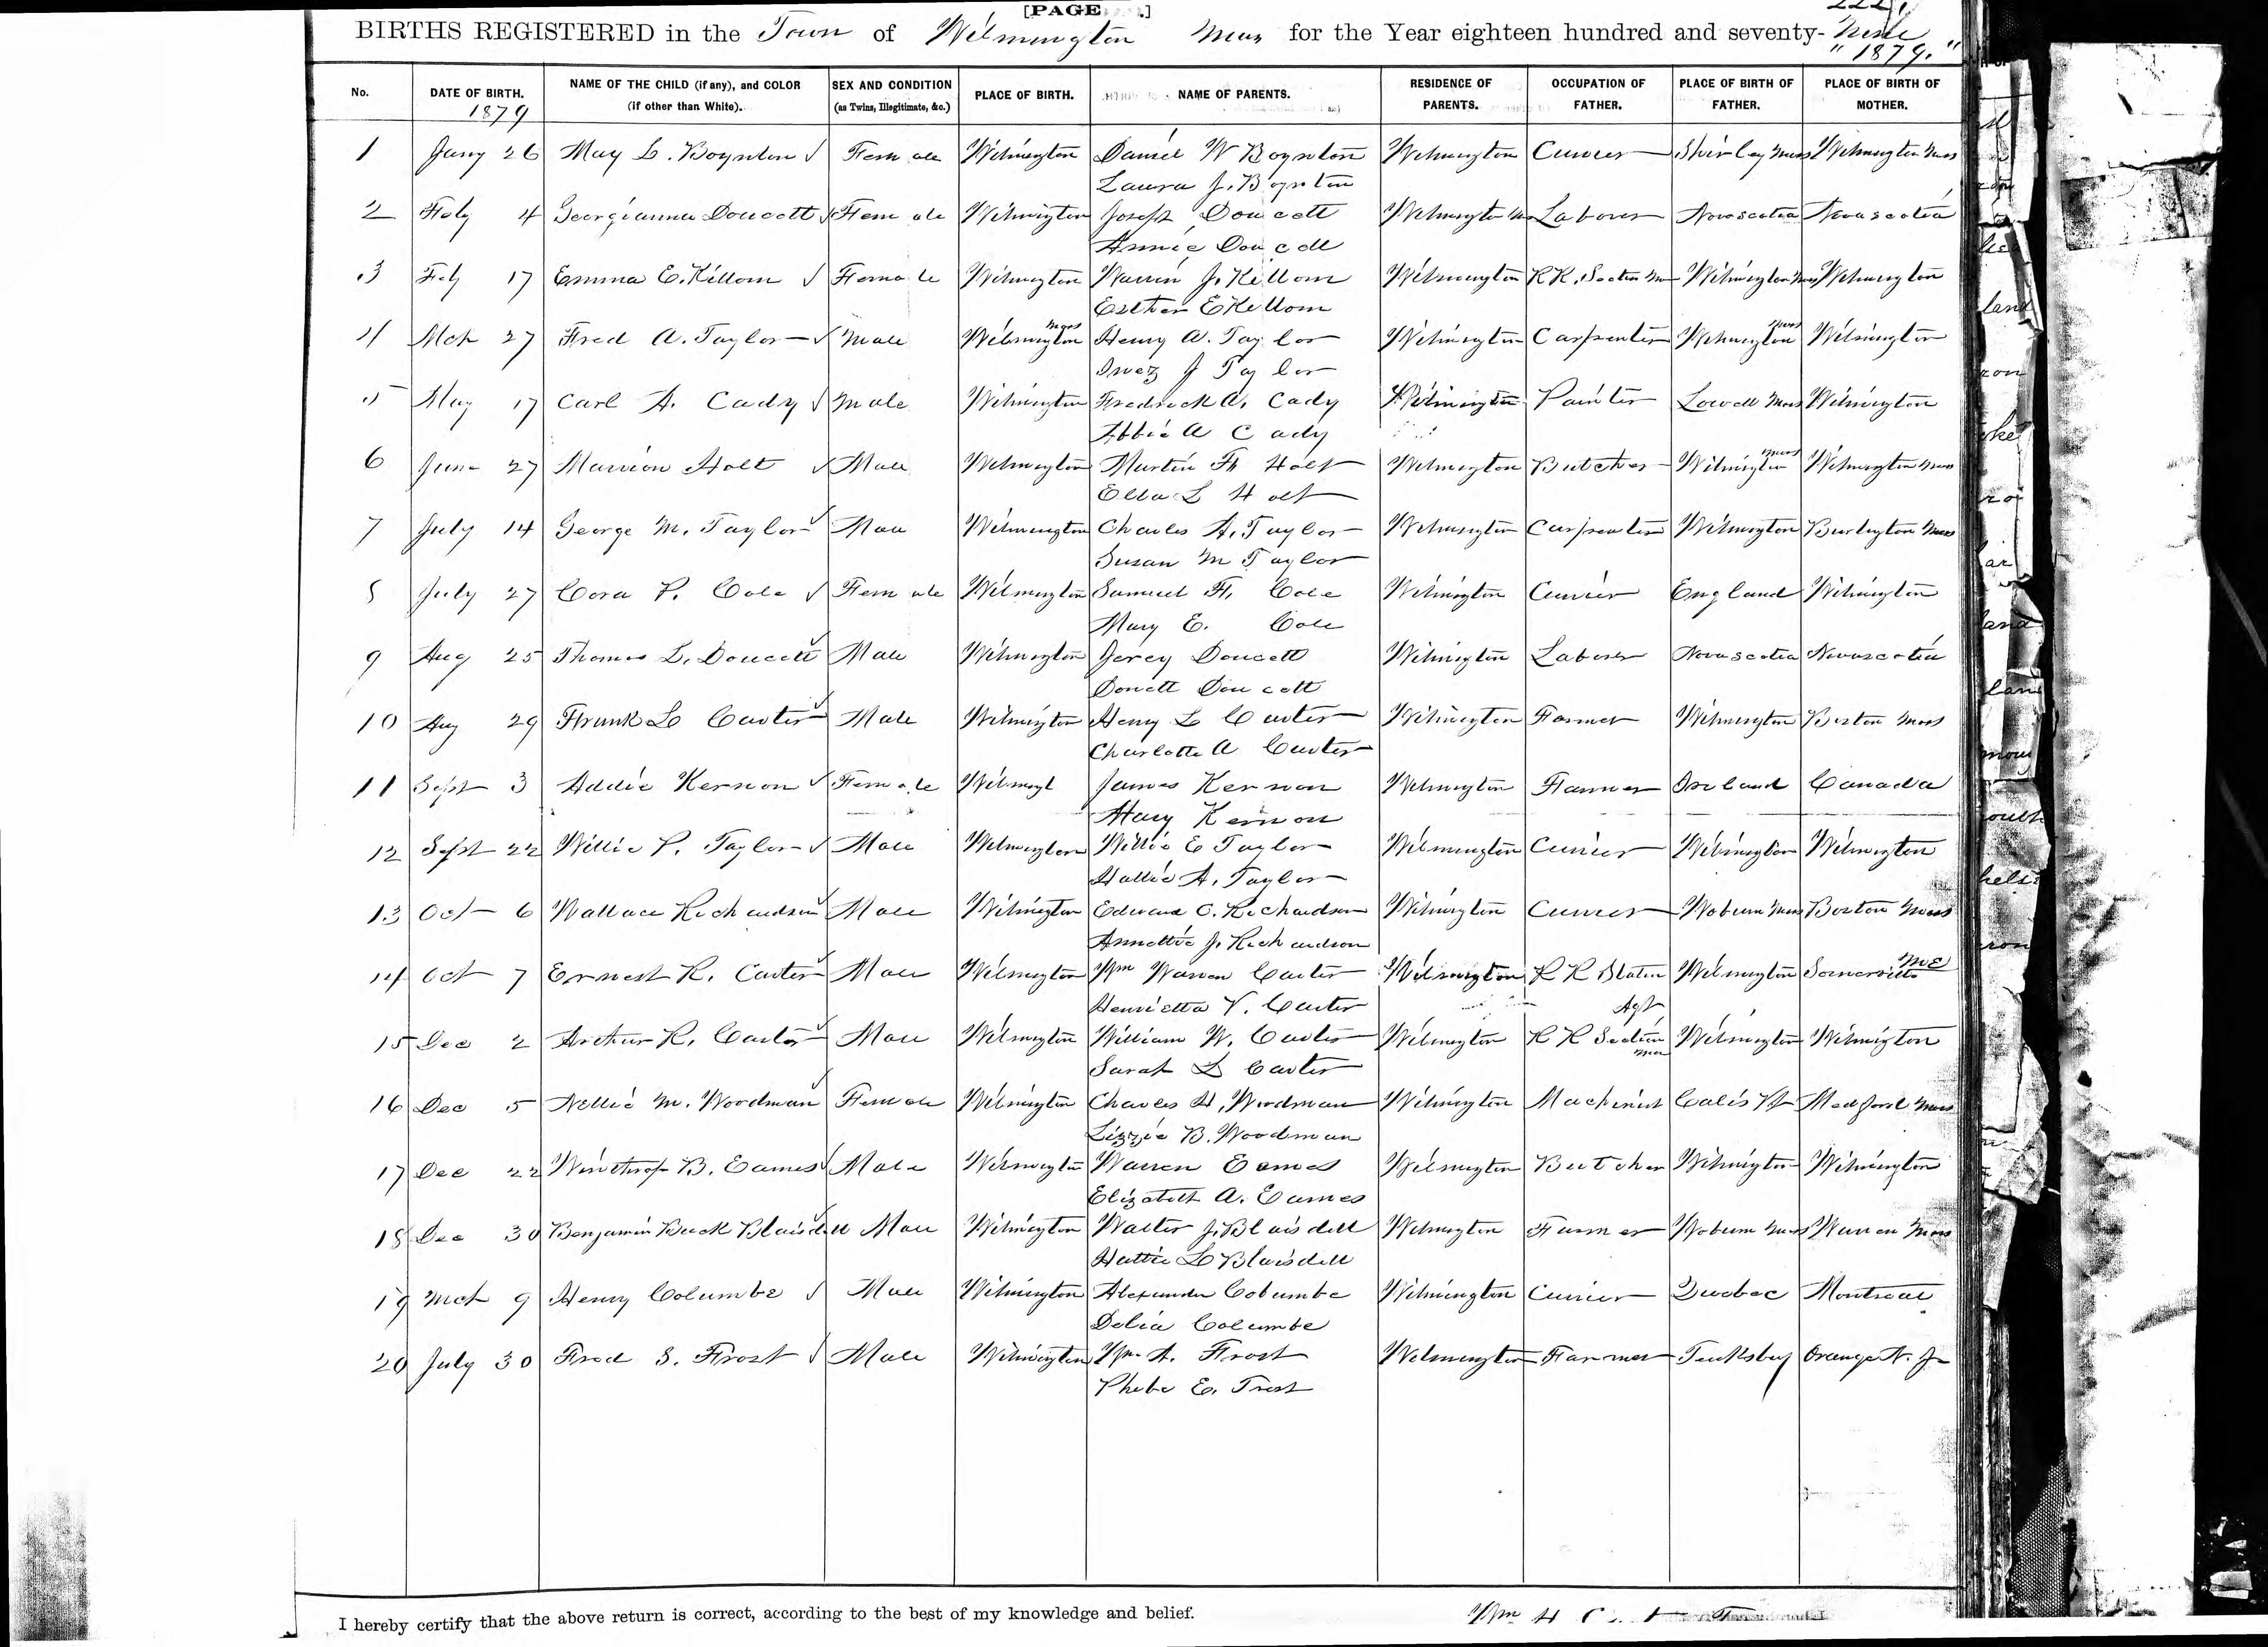 [PAGE .]
BIRTHS REGISTERED in the Town of Wilmington Mass for the Year eighteen hundred and seventy- Nine
"1879."
No. DATE OF BIRTH. NAME OF THE CHILD (if any), and COLOR (if other than White). SEX AND CONDITION (as Twins, Illegitimate, &c.) PLACE OF BIRTH. NAME OF PARENTS. RESIDENCE OF PARENTS. OCCUPATION OF FATHER. PLACE OF BIRTH OF FATHER. PLACE OF BIRTH OF MOTHER.
1879
1 Jany 26 May L. Boynton Female Wilmington Daniel W Boynton Wilmington Currier Shirley Mass Wilmington Mass
Laura J. Boynton
2 Feby 4 Georgianna Doucett Female Wilmington Joseph Doucett Wilmington Ms Laborer Novascotia Novascotia
Annie Doucett
3 Feb 17 Emma E. Killom Female Wilmington Warrin J. Killom Wilmington RR. Section Man Wilmington Mass Wilmington
Esther E Killom
4 Mch 27 Fred A. Taylor Male Wilmington Mass Henry A. Taylor Wilmington Carpenter Wilmington Mass Wilmington
Inez J Taylor
5 May 17 Carl A. Cady Male Wilmington Fredrick A. Cady Wilmington Painter Lowell Mass Wilmington
Abbie A Cady
6 June 27 Marrion Holt Male Wilmington Martin H Holt Wilmington Butcher Wilmington Mass Wilmington Mass
Ella L Holt
7 July 14 George M. Taylor Male Wilmington Charles A. Taylor Wilmington Carpenter Wilmington Burlington Mass
Susan M Taylor
8 July 27 Cora P. Cole Female Wilmington Samuel H. Cole Wilmington Currier England Wilmington
Mary E. Cole
9 Aug 25 Thomas L. Doucett Male Wilmington Jerey Doucett Wilmington Laborer Novascotia Novascotia
Donett Doucett
10 Aug 29 Frank L Carter Male Wilmington Henry L Carter Wilmington Farmer Wilmington Boston Mass
Charlotte A Carter
11 Sept 3 Addie Kernon Female Wilmgt James Kernon Wilmington Farmer Ireland Canada
Mary Kernon
12 Sept 22 Willie P. Taylor Male Wilmington Willie E Taylor Wilmington Currier Wilmington Wilmington
Hallie A. Taylor
13 Oct 6 Wallace Richardson Male Wilmington Edward O. Richardson Wilmington Currier Woburn Mass Boston Mass
Annettie J. Richardson
14 Oct 7 Ernest R. Carter Male Wilmington Wm Warren Carter Wilmington R R Station Wilmington Somerville ME
Henrietta V. Carter Agt
15 Dec 2 Arthur R. Carter Male Wilmington William W. Carter Wilmington R R Section man Wilmington Wilmington
Sarah L Carter
16 Dec 5 Nellie M. Woodman Female Wilmington Charles H. Woodman Wilmington Machinist Calis Vt Medford Mass
Lizzie B. Woodman
17 Dec 22 Winthrop B. Eames Male Wilmington Warren Eames Wilmington Butcher Wilmington Wilmington
Elizabeth A. Eames
18 Dec 30 Benjamin Buck Blaisdell Male Wilmington Walter J. Blaisdell Wilmington Farmer Woburn Mass Warren Mass
Hattie L Blaisdell
19 Mch 9 Henry Columbe Male Wilmington Alexander Columbe Wilmington Currier Quebec Montreal
Delia Columbe
20 July 30 Fred S. Frost Male Wilmington Wm A. Frost Wilmington Farmer Teuksbuy Orange N. J
Phebe E. Frost
I hereby certify that the above return is correct, according to the best of my knowledge and belief.
Wm H